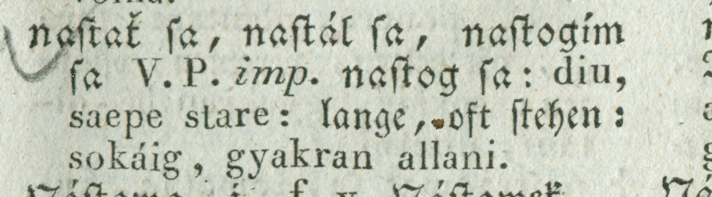 naſtať ſa, naſtál ſa, naſtogím
ſa V. P. imp. naſtog ſa: diu,
saepe stare: lange, oft ſtehen:
sokáig, gyakran allani.